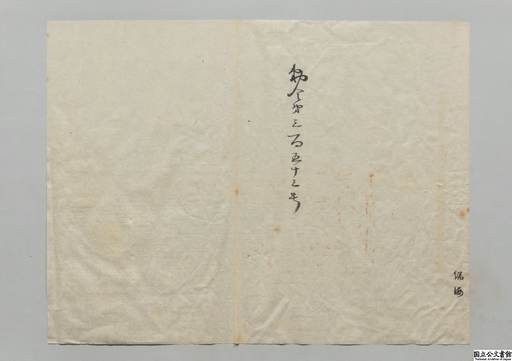 勅令第三百五十三号
国立公文書館
National Archives of Japan